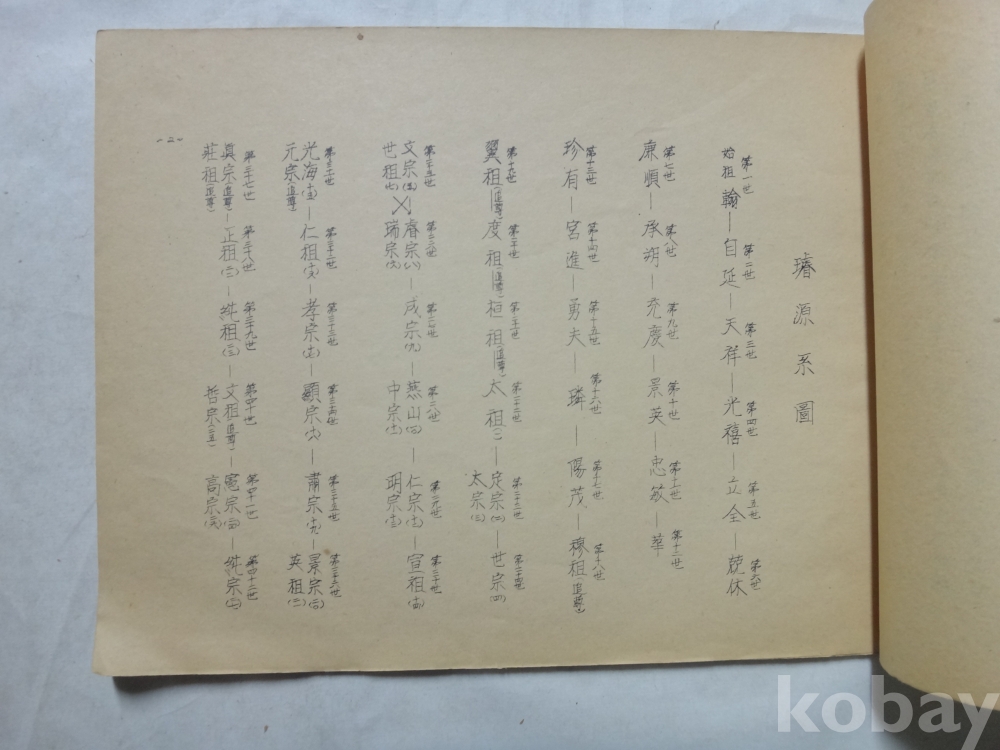 璿源系圖
第一世 第二世 第三世 第四世 第五世 第六世
始祖 翰—自延—天祥—光禧—立全—兢休
第七世 第八世 第九世 第十世 第十一世 第十二世
廉順—承朔—充慶—景英—忠敏—華
第十三世 第十四世 第十五世 第十六世 第十七世 第十八世
珍有—宮進—勇夫—璘—陽茂—穆祖(追尊)
第十九世 第二十世 第二十一世 第二十二世 第二十三世 第二十四世
翼祖(追尊)—度祖(追尊)—桓祖(追尊)—太祖(一)—定宗(二)—世宗(四)
太宗(三)
第二十五世 第二十六世 第二十七世 第二十八世 第二十九世 第三十世
文宗(五) 睿宗(八)—成宗(九)—燕山(十)—仁宗(十二)—宣祖(十四)
世祖(七) 瑞宗(六) 中宗(十一) 明宗(十三)
第三十一世 第三十二世 第三十三世 第三十四世 第三十五世 第三十六世
光海(十五)—仁祖(十六)—孝宗(十七)—顯宗(十八)—肅宗(十九)—景宗(二十)
元宗(追尊) 英祖(二一)
第三十七世 第三十八世 第三十九世 第四十世 第四十一世 第四十二世
眞宗(追尊)—正祖(二二)—純祖(二三)—文祖(追尊)—憲宗(二四)—純宗(二七)
莊祖(追尊) 哲宗(二五) 高宗(二六)
-二-
kobay